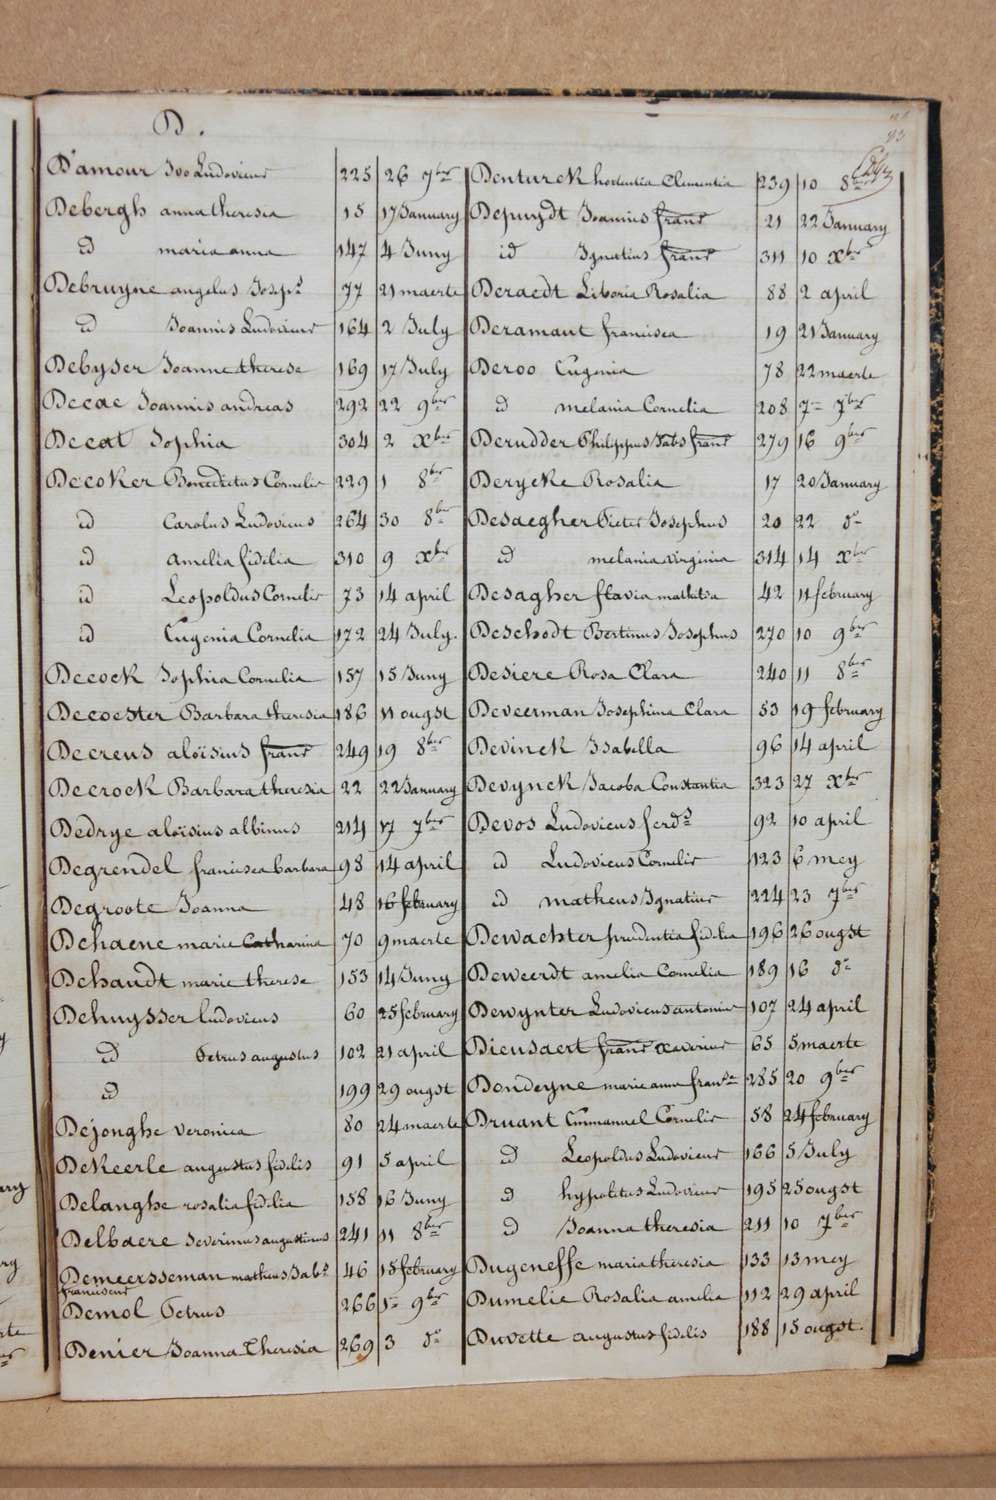 D.
D'amour Ivo Ludovicus 225 26 7ber
Debergh anna theresia 15 17 January
id maria anna 147 4 Juny
Debruyne angelus Josephs 77 21 maerte
id Joannis Ludovicus 164 2 July
Debyser Joanne therese 169 17 July
Decae Joannis andreas 292 22 9ber
Decat Sophia 304 2 xber
Decoker Benedictus Cornelis 229 1 8ber
id Carolus Ludovicus 264 30 8ber
id Amelia fidelia 310 9 xber
id Leopoldus Cornelis 73 14 april
id Eugenia Cornelia 172 24 July.
Decock Sophia Cornelia 157 15 Juny
Decoester Barbara theresia 186 11 ougst
Decreus aloïsius frans 249 19 8ber
Decrock Barbara theresia 22 22 January
Dedrye aloïsius albinus 214 17 7ber
Degrendel francisca barbara 98 14 april
Degroote Joanna 48 16 february
Dehaene marie Catharina 70 9 maerte
Dehandt marie therese 153 14 Juny
Dehuysser ludovicus 60 25 february
id Petrus augustus 102 21 april
id 199 29 ougst
Dejonghe veronica 80 24 maerte
Dekeerle augustus fidelis 91 5 april
Delanghe rosalia fidelia 158 16 Juny
Delbaere Severinus augustinus 241 11 8ber
Demeersseman matheus Jabs 46 15 february
franciscus
Demol Petrus 266 1e 9ber
Denier Joanna Theresia 269 3 do
83
Denturck hortentia Clementia 239 10 8ber
Depuydt Joannis frans 21 22 January
id Ignatius frans 311 10 xber
Deraedt Liboria Rosalia 88 2 april
Deramaut francisca 19 21 January
Deroo Eugenia 78 22 maerte
id melania Cornelia 208 7e 7ber
Derudder Philippus Jabs frans 279 16 9ber
Derycke Rosalia 17 20 January
Desaegher Pieter Josephus 20 22 do
id melania virginia 314 14 xber
Desagher flavia mathilda 42 11 february
Deschodt Bertinus Josephus 270 10 9ber
Desiere Rosa Clara 240 11 8ber
Deveerman Josephina Clara 53 19 february
Devinck Isabella 96 14 april
Devynck Jacoba Constantia 323 27 xber
Devos Ludovicus ferds 92 10 april
id Ludovicus Cornelis 123 6 mey
id matheus Ignatius 224 23 7ber
Dewachter prudentia fidelia 196 26 ougst
Deweerdt amelia Cornelia 189 16 do
Dewynter Ludovicus antonius 107 24 april
Dieusaert frans xaverius 65 5 maerte
Dondeyne marie anna franse 285 20 9ber
Druant Emmanuel Cornelis 58 24 february
id Leopoldus Ludovicus 166 5 July
id hypolitus Ludovicus 195 25 ougst
id Joanna theresia 211 10 7ber
Dugeneffe maria theresia 133 13 mey
Dumelie Rosalia amelia 112 29 april
Duvette augustus fidelis 188 15 ougst.